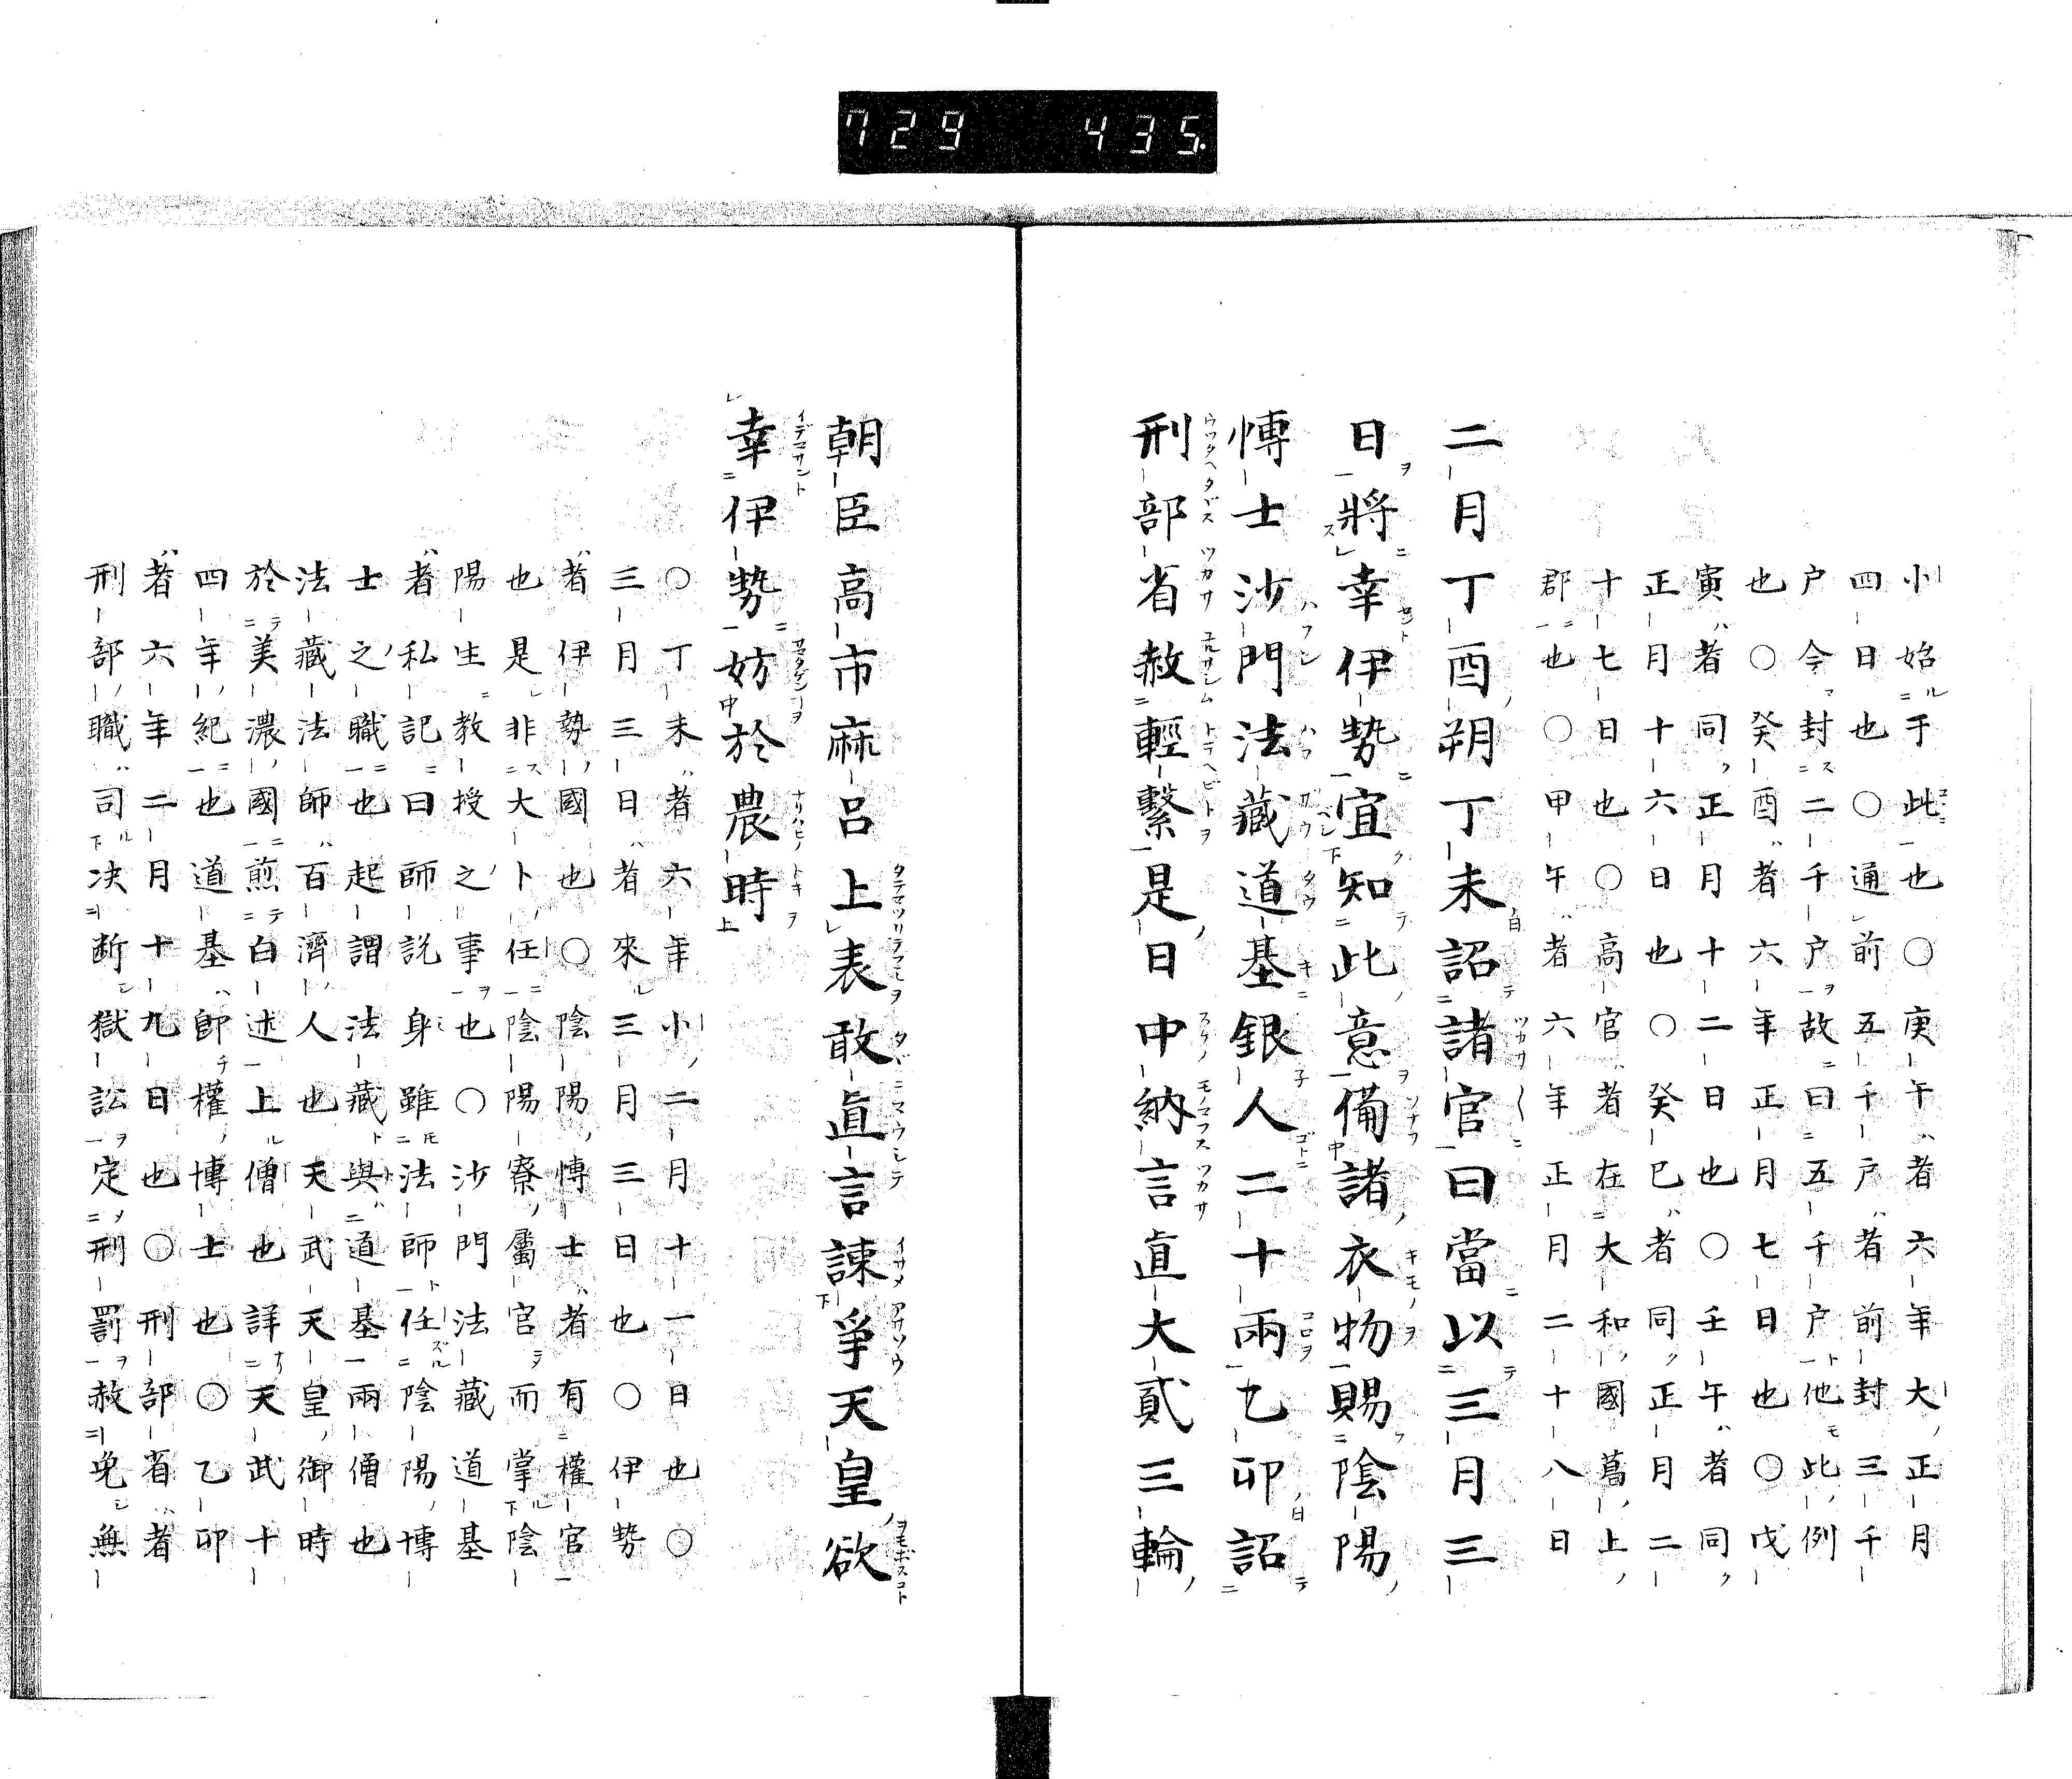 729 435.
小始于此也〇庚午者六年大正月
四日也〇通前五千戸者前封三千
戸今封二千戸故曰五千戸他此例
也〇癸酉者六年正月七日也〇戊
寅者同正月十二日也〇壬午者同
正月十六日也〇癸巳者同正月二
十七日也〇高官者在大和國葛上
郡也〇甲午者六年正月二十八日
二月丁酉朔丁未詔諸官曰當以三月三
日將幸伊勢宜知此意備諸衣物賜陰陽
博士沙門法藏道基銀人二十兩乞卯詔
刑部省赦輕繫是日中納言直大貳三輪
朝臣高市麻呂上表敢直言諫爭天皇欲
幸伊勢妨於農時
〇丁未者六年小二月十一日也〇
三月三日者來三月三日也〇伊勢
者伊勢國也〇陰陽博士者有權官
也是非大卜任陰陽寮屬官而掌陰
陽生教授之事也〇沙門法藏道基
者私記曰師説身雖法師任陰陽博
士之職也起謂法藏與道基兩僧也
法藏法師百濟人也天武天皇御時
於美濃國煎白朮上僧也詳天武十
四年紀也道基師權博士也〇乙卯
者六年二月十九日也〇刑部省者
刑部職司決断獄訟定刑罰赦免無